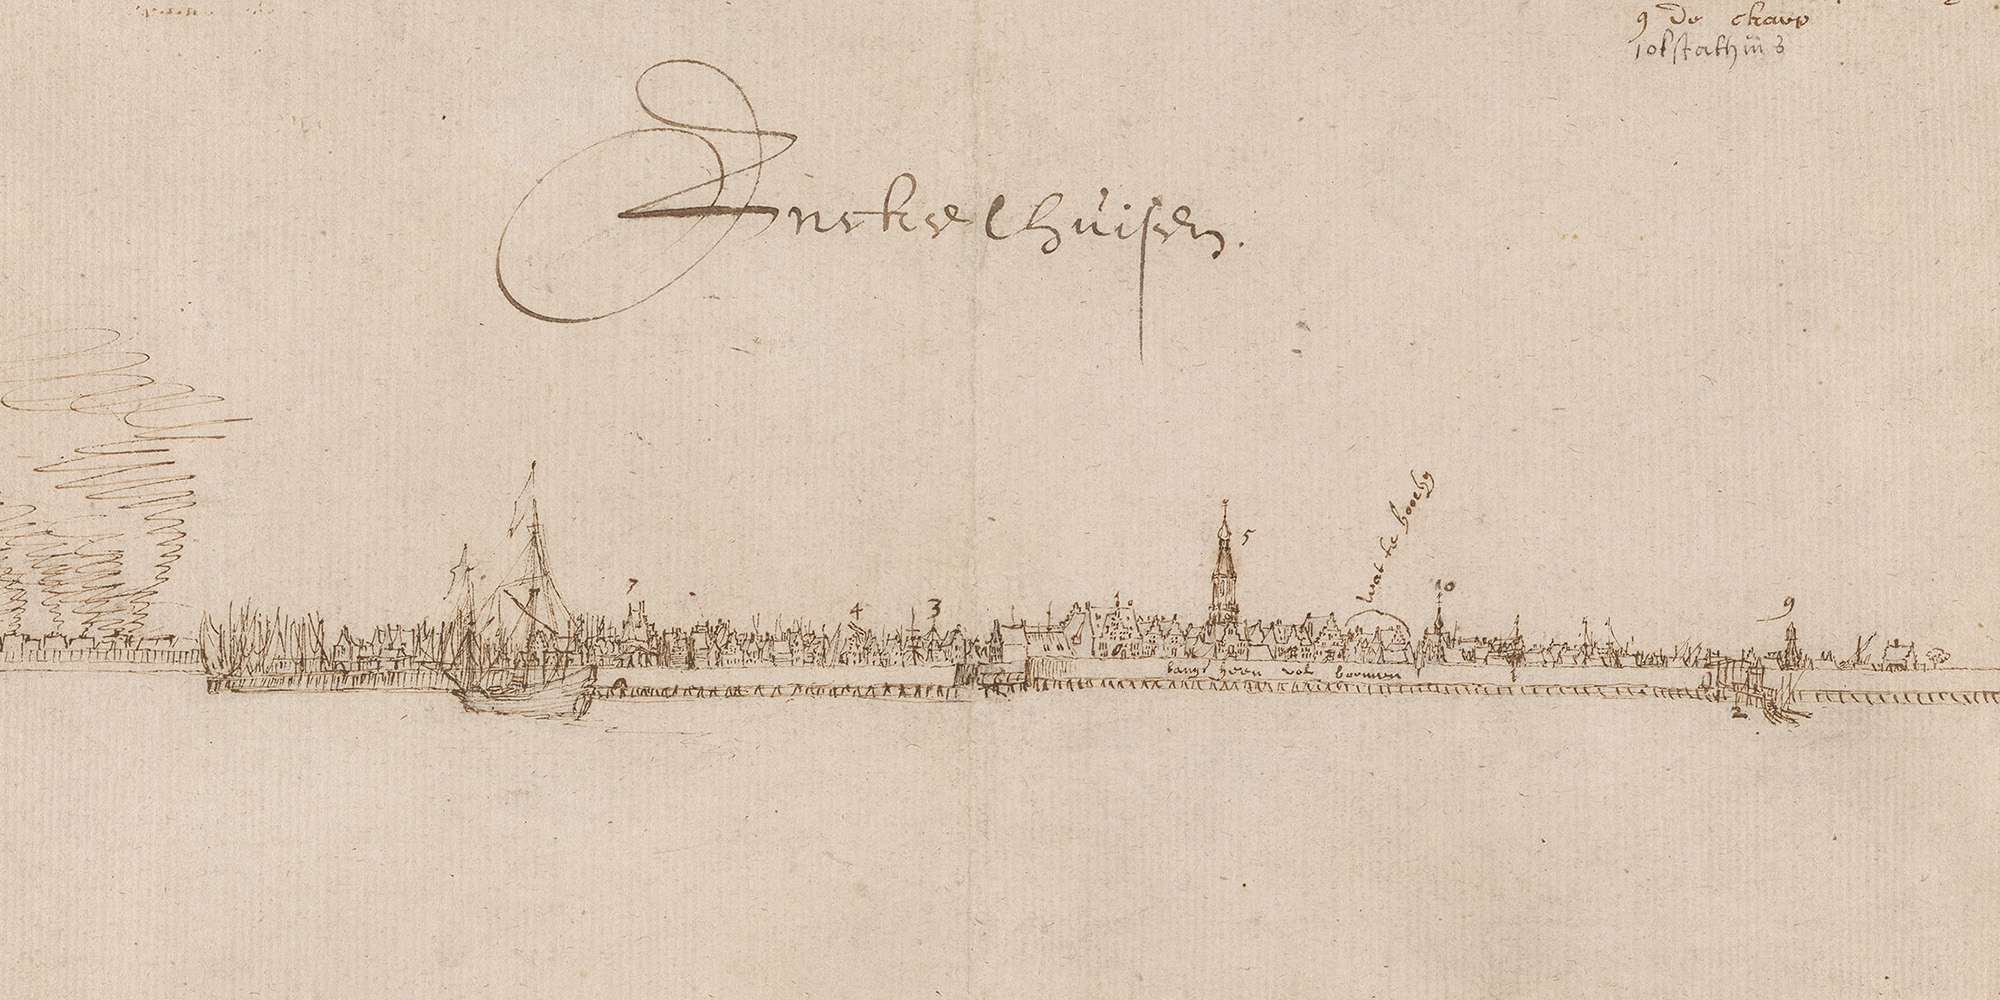 9 de ckaep
10 t stathüis
Enckelhuisen.
wat te hooch
5
7
4
3
10
9
langs heen vol boomen
2